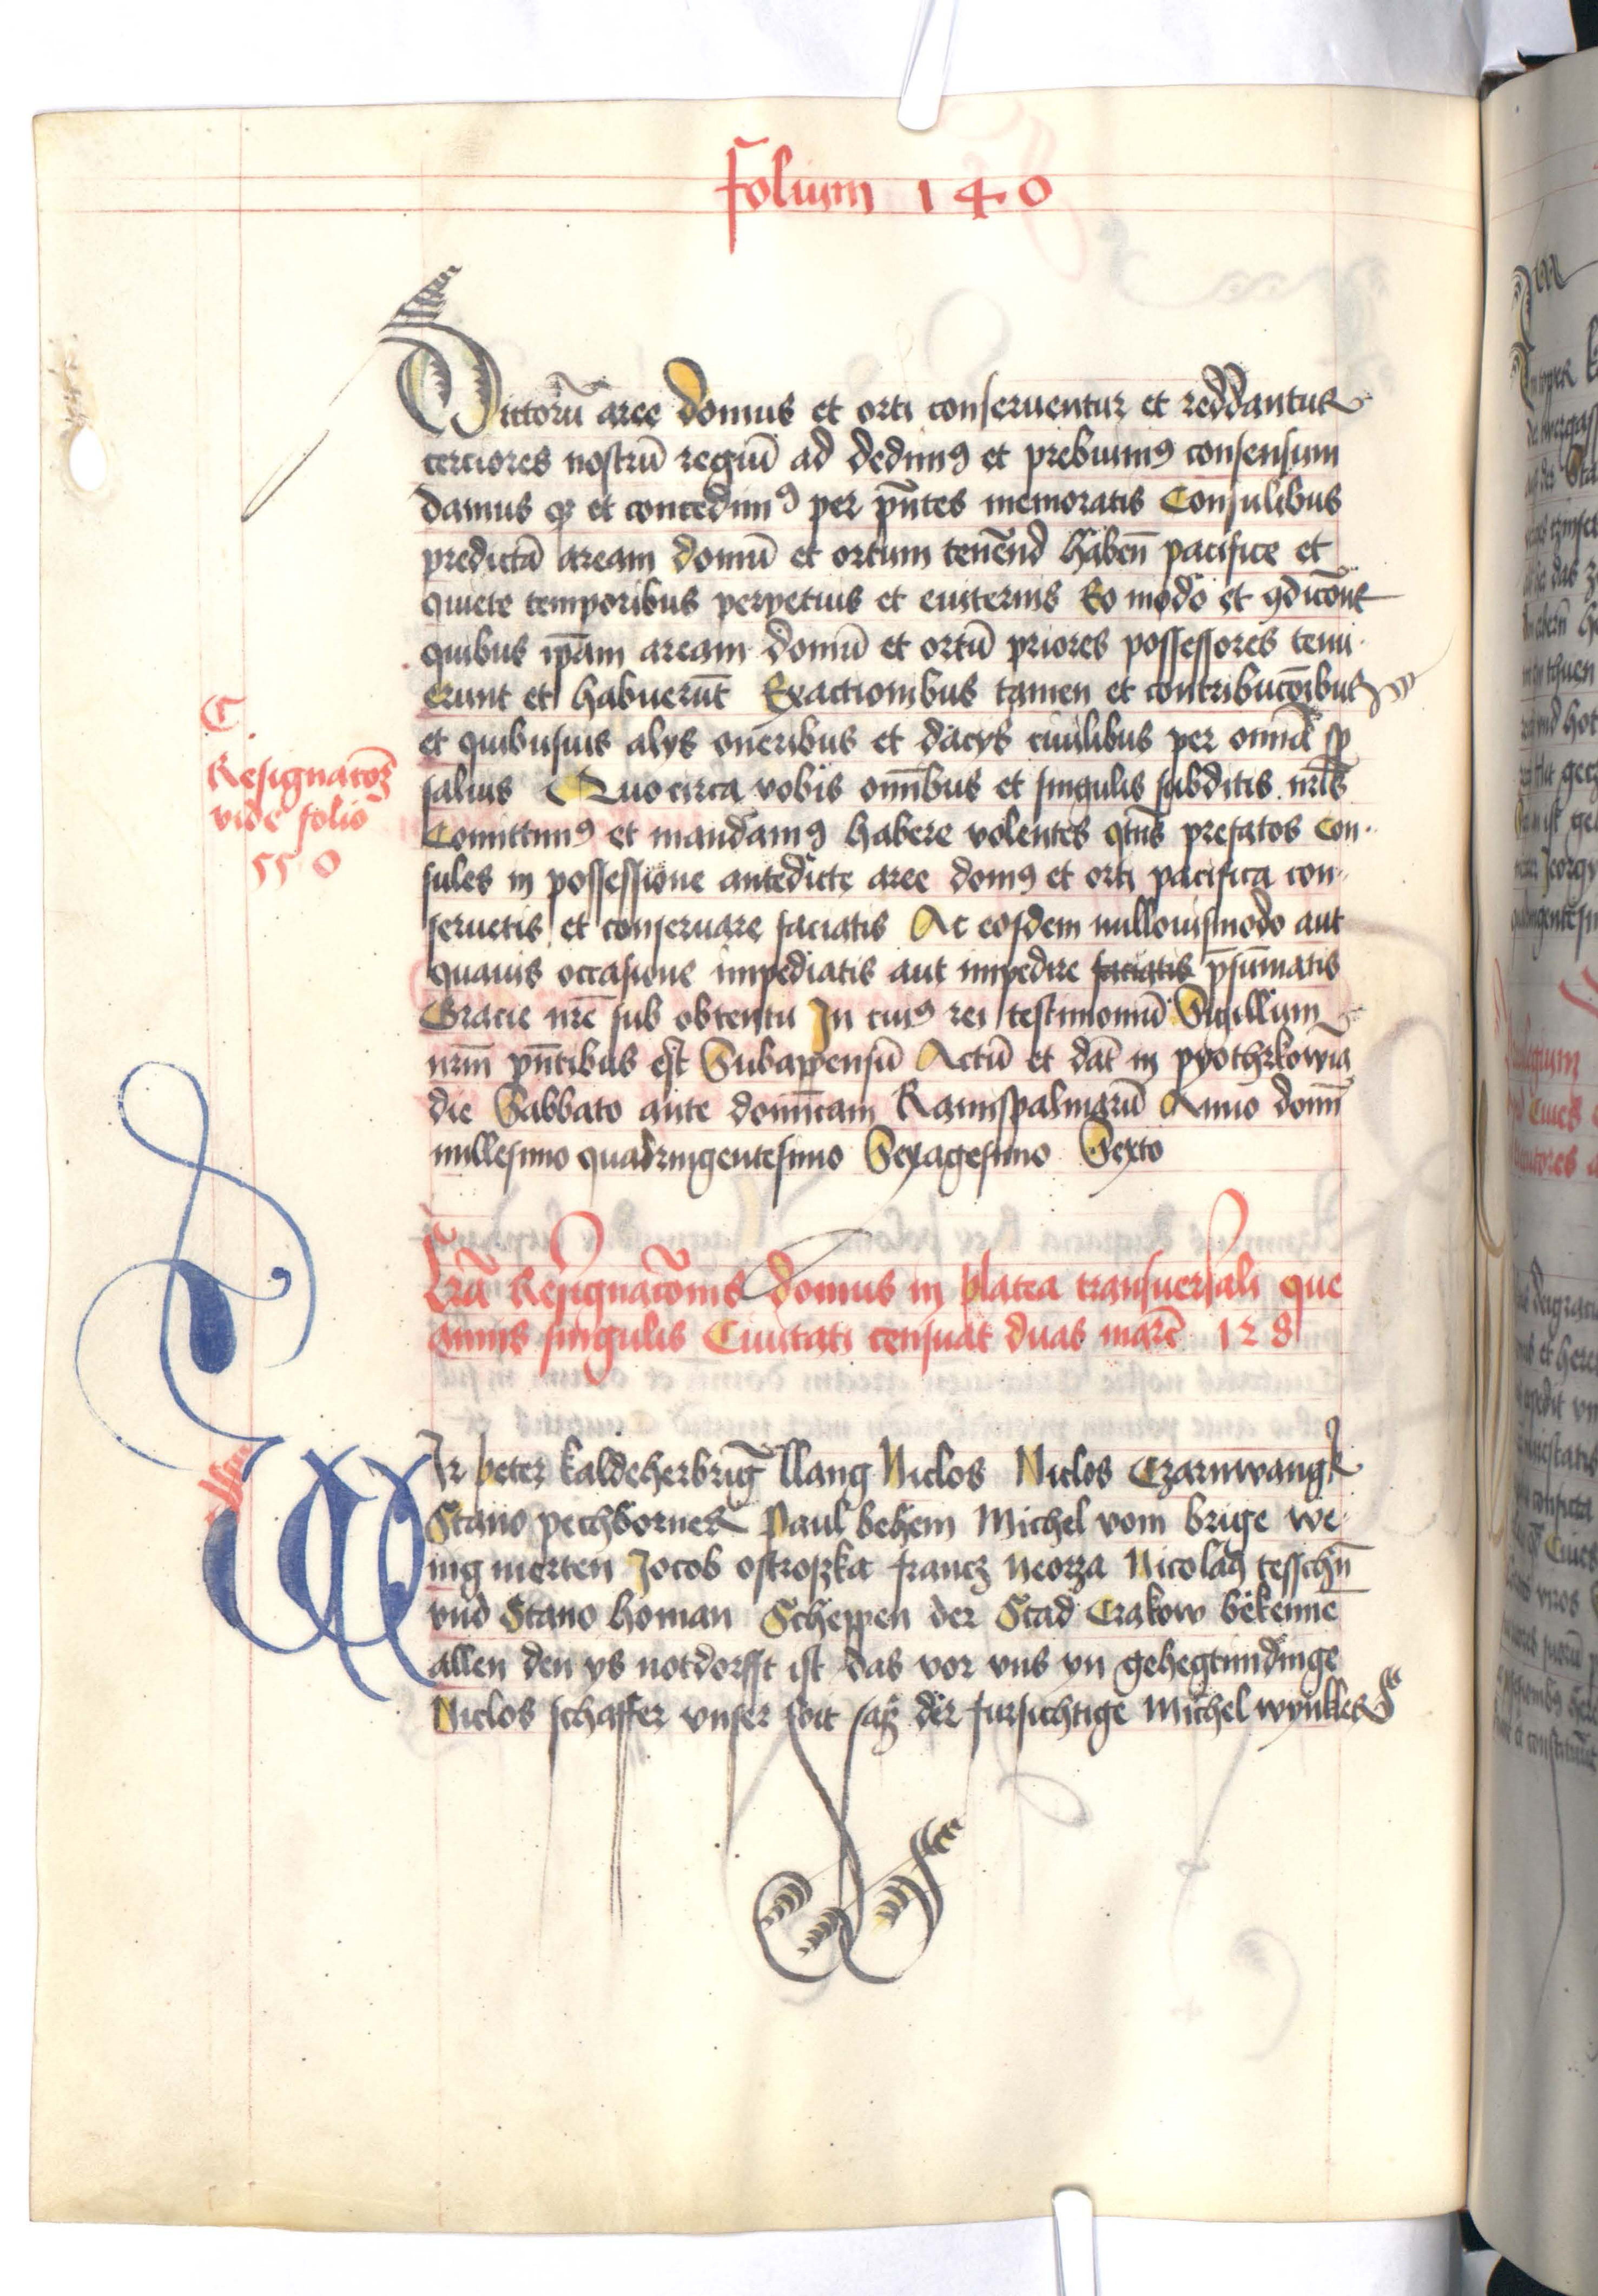 Folium 140
Dictorū aree domus et orti conseruentur et reddantur
cerciores nostrū regiū ad dedimꝰ et prebuimꝰ consensum
damus qꝫ et concedimꝰ per pn̄tes memoratis Consulibus
predictā aream domū et ortum tenēnd habeñ pacifice et
quiete temporibus perpetuis et euiternis Eo modo et ꝯdicōne
quibus ip̄am aream domū et ortū priores possessores tenu
erunt et habuerūt Exactionibus tamen et contribucōibus
et quibusuis alys oneribus et dacys ciuilibus per omnia sp̄
saluis Quocirca vobis om̄ibus et singulis subditis nr̄is
Comittimꝰ et mandamꝰ habere volentes qtn̄s prefatos Con
sules in possessione antedicte aree domꝰ et orti pacifica con
seruetis et conseruare faciatis Ac eosdem nullouismodo aut
quauis occasione impediatis aut impedire faciatis p̄sumatis
Gracie nr̄e sub obtentu In cuiꝰ rei testimoniū Sigillum
nr̄m pn̄tibus est Subappensū Actū et dat̄ in pyothrkowia
die Sabbato ante dominicam Ramispalmarū Anno domī
millesimo quadringentesimo Sexagesimo Sexto
C
Resignacōꝫ
vide folio
550
Lr̄a Resignacōnis domus in platea transuersali que
annis singulis Ciuitati censuat duas marc̄ 128
WIr peter kaldeherbriḡ llang Niclos Niclos Czarnwangk
Stano pechborner Paul behem Michel vom brige we
nig merten Jocob ostroszka francz Neorza Nicolaꝰ tesschn̄
vnd Stano homan Scheppen der Stad Crakow bekenne
allen den ys notdorfft ist das vor vns yn gehegtimdinge
Niclos schaffer vnser foit saß der fursichtige Michel wynkler